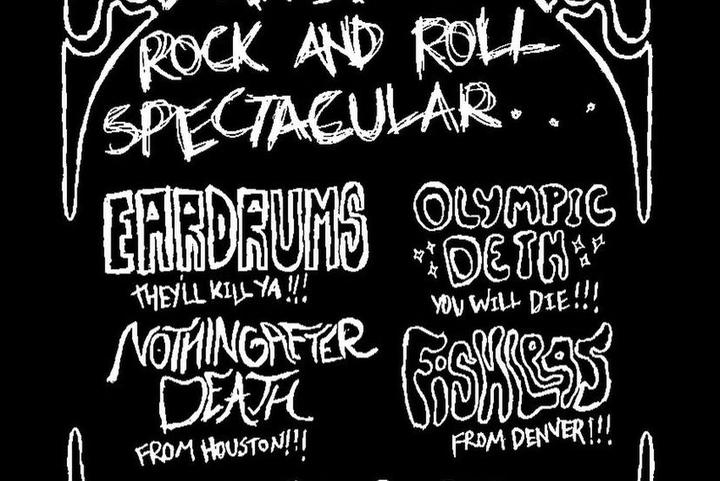 ROCK AND ROLL
SPECTACULAR...
EARDRUMS
THEY'LL KILL YA!!!
OLYMPIC
DETH
YOU WILL DIE!!!
NOTHINGAFTER
DEATH
FROM HOUSTON!!!
FISHLEGS
FROM DENVER!!!